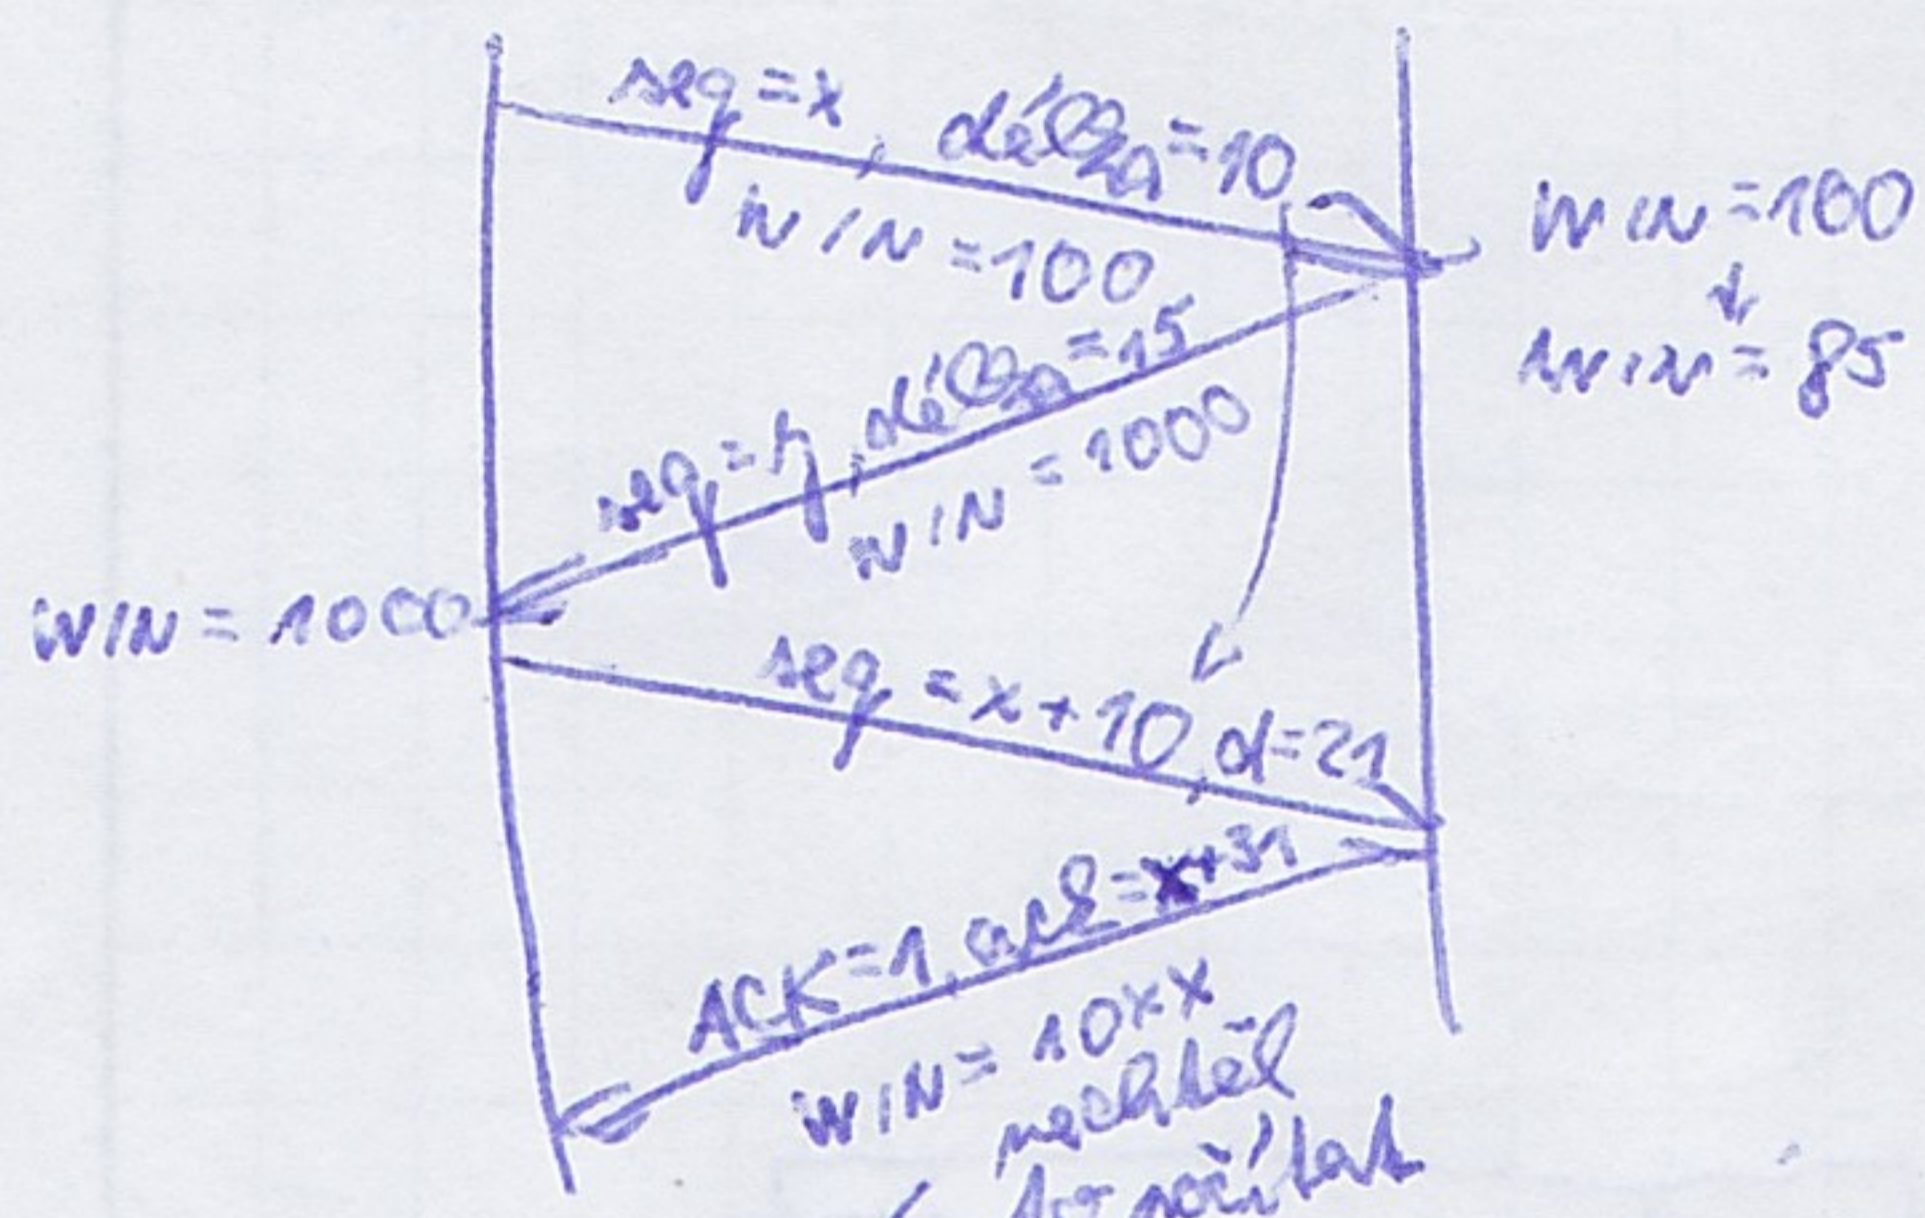 seq=x, délka=10
WIN=100
WIN=100
WIN=85
seq=y, délka=15
WIN=1000
WIN=1000
seq=x+10, d=21
ACK=1, ack=x+31
WIN=10xx
nechtěl
to počítat